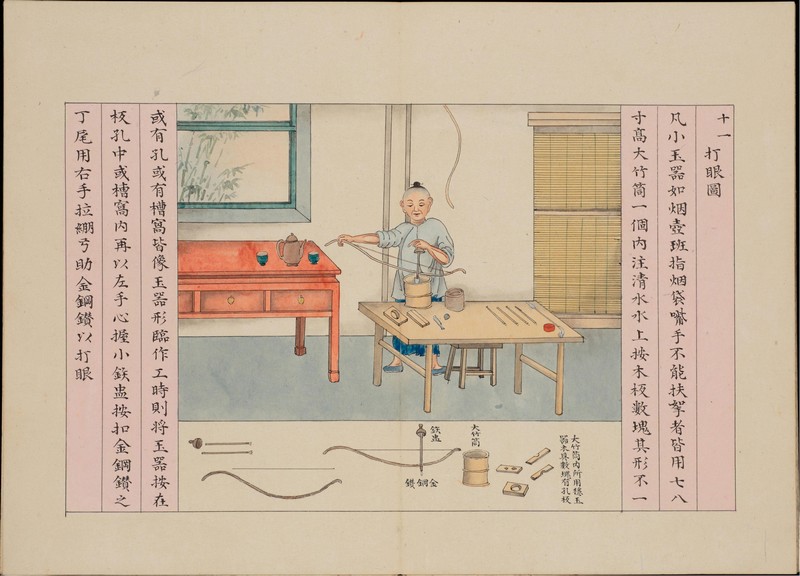 十一 打眼圖
凡小玉器如烟壺班指烟袋嘴手不能扶拏者皆用七八
寸高大竹筒一個內注清水水上按木板數塊其形不一
或有孔或有槽窩皆像玉器形臨作工時則將玉器按在
板孔中或槽窩內再以左手心握小鉄盅按扣金鋼鑽之
丁尾用右手拉繃弓助金鋼鑽以打眼
大竹筒內所用穩玉
器木具數塊有孔板
大竹筒
鉄盅
金鋼鑽